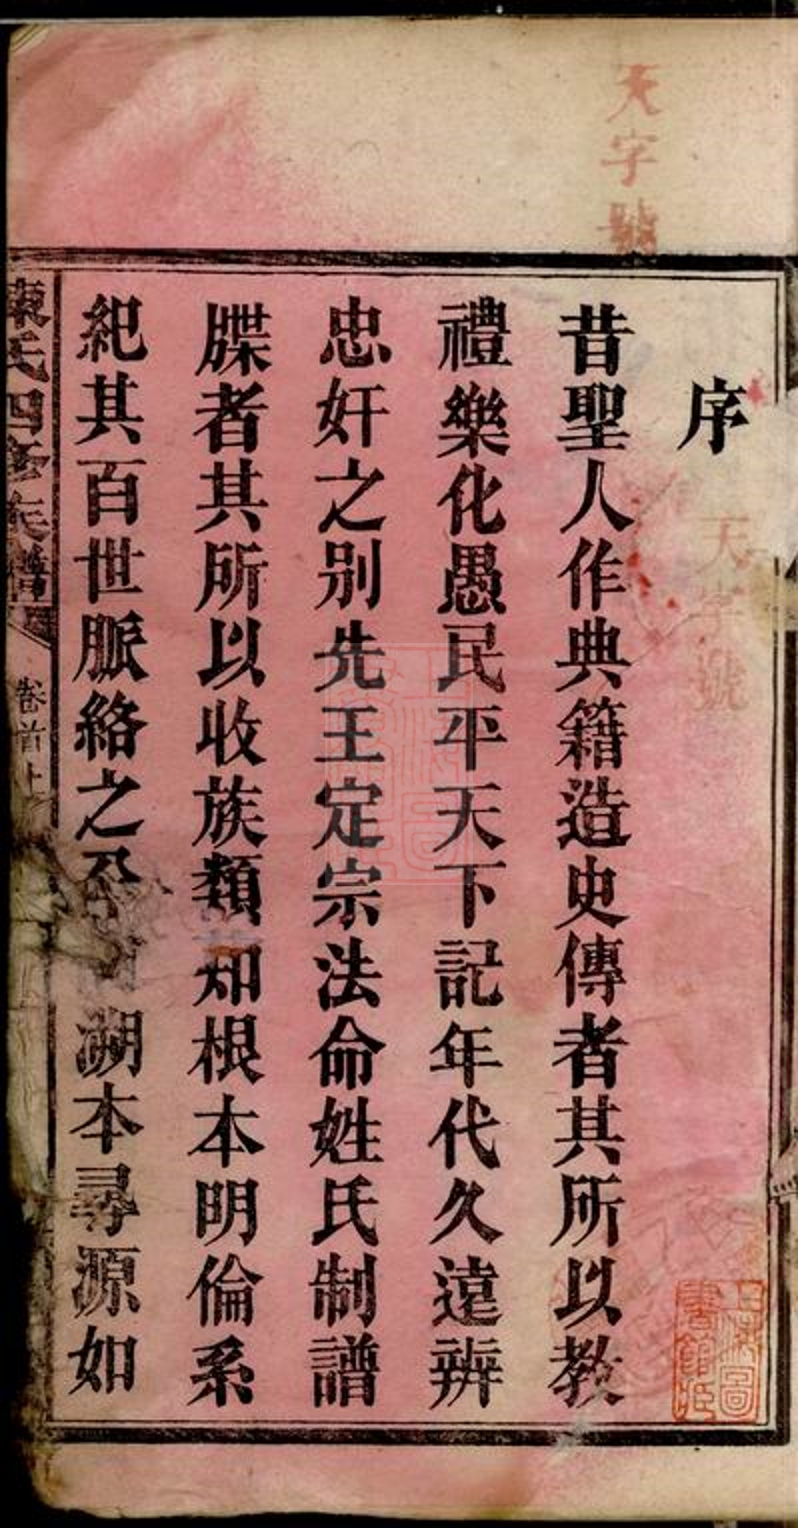 天字號
序
天字號
昔聖人作典籍造史傳者其所以教
禮樂化愚民平天下記年代久遠辨
忠奸之別先王定宗法命姓氏制譜
牒者其所以收族類知根本明倫系
紀其百世脈絡之溯本尋源如
陳氏四修族譜
卷首上
上海圖書館藏